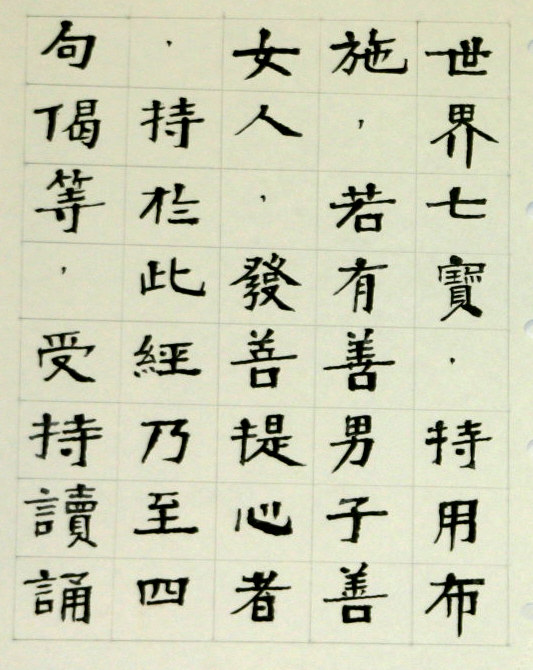 世界七寶，持用布
施，若有善男子善
女人，發菩提心者
，持於此經乃至四
句偈等，受持讀誦